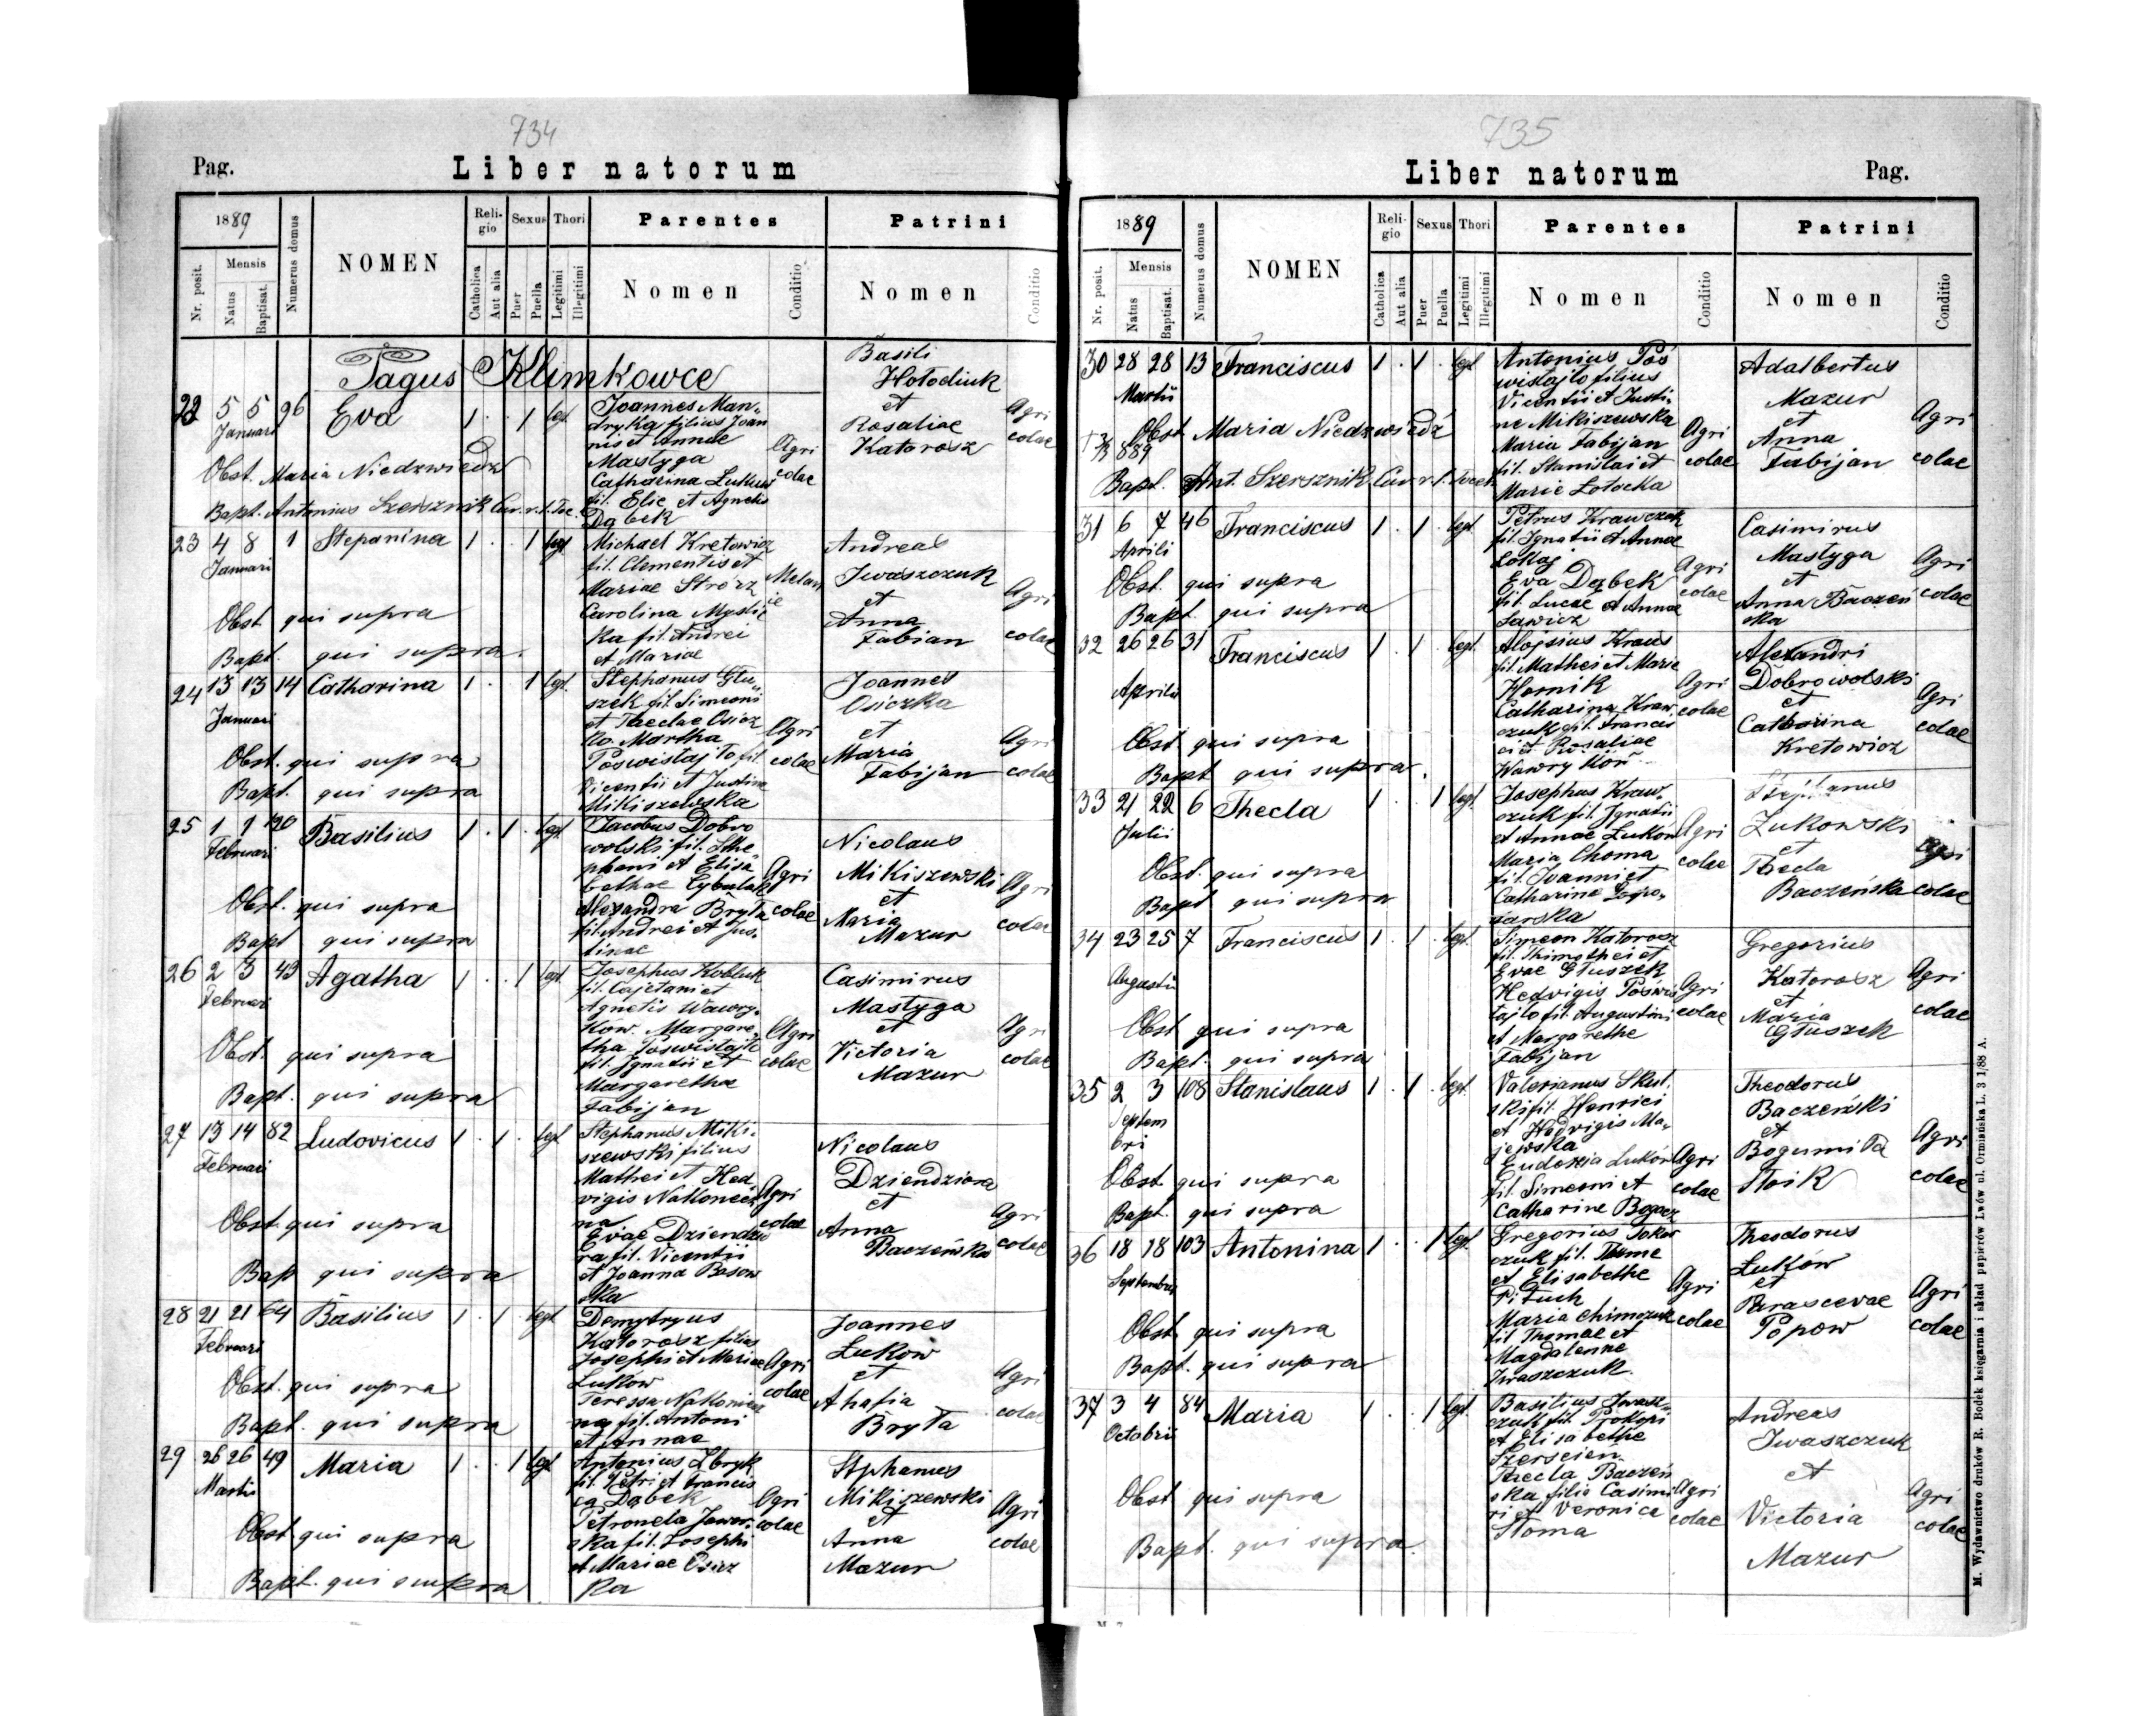 734
Pag.
Liber natorum
1889
Numerus domus
NOMEN
Religio
Sexus
Thori
Parentes
Patrini
Nr. posit.
Mensis
Natus
Baptisat.
Catholica
Aut alia
Puer
Puella
Legitimi
Illegitimi
Nomen
Conditio
Nomen
Conditio
Pagus Klimkowce
22 5 5 96 Eva 1 . . 1 legt
Januari
Joannes Man-
dryka filius Joan
nis et Annae
Mastyga
Catharina Łukow
fil. Elie et Agnetis
Dąbek
Agri
colae
Basili
Hołodiuk
et
Rosaliae
Katorosz
Agri
colae
Obst. Maria Niedzwiedz
Bapt. Antonius Szersznik Cur. r. l. Toc.
23 4 8 1 Stepanina 1 . . 1 legt
Januari
Michael Kretowicz
fil. Clementis et
Mariae Stróż
Carolina Mysli
ka fil. Andrei
et Mariae
Andreas
Iwaszczuk
et
Anna
Fabian
Agri
colae
Obst qui supra
Bapt. qui supra.
24 13 13 14 Catharina 1 . 1 legt.
Januari
Stephanus Głu
szek fil. Simeoni
et Theclae Osicz
ka. Martha
Poświstajło fil.
Vicentii et Justine
Mikiszewska
Agri
colae
Joannes
Osiczka
et
Maria
Fabijan
Agri
colae
Obst. qui supra
Bapt. qui supra
25 1 1 120 Basilius 1 . 1 . legt
Februari
Jacobus Dobro
wolski fil. Sthe
phani et Elisa
bethae Cybulak
Alexandra Bryła
fil. Andrei et Jus-
tinae
Agri
colae
Nicolaus
Mikiszewski
et
Maria
Mazur
Agri
colae
Obst. qui supra
Bapt qui supra
26 2 3 43 Agatha 1 . . 1 legt
Februari
Josephus Kobluk
fil. Cajetani et
Agnetis Wawry-
ków. Margare-
tha Poświstajło
fil. Ignatii et
Margarethae
Fabijan
Agri
colae
Casimirus
Mastyga
et
Victoria
Mazur
Agri
colae
Obst. qui supra
Bapt. qui supra
27 13 14 82 Ludovicus 1 . 1 . legt
Februari
Stephanus Miki-
szewski filius
Mathei et Hed
vigis Nakonecz
na
Evae Dziendzio
ra fil. Vicentii
et Joanna Basow
ska
Agri
colae
Nicolaus
Dziendziora
et
Anna
Baczeńska
Agri
colae
Obst qui supra
Bap qui supra
28 21 21 64 Basilius 1 . 1 . legt
Februari
Demytryus
Katorosz filius
Josephi et Mariae
Łukow
Teressa Nakoniecz
na fil. Antoni
et Annae
Agri
colae
Joannes
Łukow
et
Ahafia
Bryła
Agri
colae
Obst. qui supra
Bapt. qui supra
29 26 26 49 Maria 1 . . 1 legt
Martii
Antonius Zbryk
fil. Petri et Francis
ca Dąbek
Petronela Jawor-
ska fil. Josephi
et Mariae Osicz
ka
Agri
colae
Stphanus
Mikiszewski
et
Anna
Mazur
Agri
colae
Obst qui supra
Bapt. qui supra
735
Liber natorum
Pag.
1889
Numerus domus
NOMEN
Religio
Sexus
Thori
Parentes
Patrini
Nr. posit.
Mensis
Natus
Baptisat.
Catholica
Aut alia
Puer
Puella
Legitimi
Illegitimi
Nomen
Conditio
Nomen
Conditio
30 28 28 13 Franciscus 1 . 1 . legt
Martii
Antonius Poś
wistajło filius
Vicentii et Justi-
ne Mikiszewska
Maria Fabijan
fil. Stanislai et
Marie Łotocka
Agri
colae
Adalbertus
Mazur
et
Anna
Fabijan
Agri
colae
Obst Maria Niedzwiedź
889
Bapt. Ant. Szersznik Cur. r. l. Tocet.
31 6 7 46 Franciscus 1 . 1 . legt
Aprili
Petrus Krawczuk
fil. Ignatii et Annae
Łokaj
Eva Dąbek
fil. Lucae et Annae
Sawicz
Agri
colae
Casimirus
Mastyga
et
Anna Baczeń
ska
Agri
colae
Obst. qui supra
Bapt. qui supra
32 26 26 31 Franciscus 1 . 1 . legt.
Aprilis
Alojsius Kraus
fil. Mathei et Marie
Hornik
Catharina Kraw
czuk fil. Francis
ci et Rosaliae
Wawrykóń
Agri
colae
Alexandri
Dobrowolski
et
Catharina
Kretowicz
Agri
colae
Obst. qui supra
Bapt qui supra.
33 21 22 6 Thecla 1 . . 1 legt.
Julii
Josephus Kraw-
czuk fil. Ignatii
et Annae Łuków
Maria Choma
fil. Joanni et
Catharine
Agri
colae
Stephanus
Żukowski
et
Thecla
Baczeńska
Agri
colae
Obst. qui supra
Bapt qui supra
34 23 25 7 Franciscus 1 . 1 . legt.
Augusti
Simeon Katorosz
fil. Thimothei et
Evae Głuszek
Hedvigis Poświs
tajło fil. Augustini
et Margarethe
Fabijan
Agri
colae
Gregorius
Katorosz
et
Maria
Głuszek
Agri
colae
Obst qui supra
Bapt. qui supra
35 2 3 108 Stanislaus 1 . 1 . legt.
Septem
bri
Valerianus Skul-
ski fil. Henrici
et Hedvigis Ma-
jewska
Eudoxia Łuków
fil. Simeoni et
Catharine Bogacz
Agri
colae
Theodorus
Baczeński
et
Bogumiła
Stoik
Agri
colae
Obst qui supra
Bapt. qui supra
36 18 18 103 Antonina 1 . . 1 legt.
Septembris
Gregorius Tokar
czuk fil. Thome
et Elisabethe
Pituch
Maria Chimczuk
fil Thomae et
Magdalenne
Iwaszczuk.
Agri
colae
Theodorus
Łuków
et
Parascevae
Popow
Agri
colae
Obst qui supra
Bapt. qui supra
37 3 4 84 Maria 1 . . 1 legt.
Octobrii
Basilius Iwasz-
czuk fil. Prokopi
et Elisabethe
Szerscień.
Thecla Baczeń
ska filia Casimi
ri et Veronica
Stoma
Agri
colae
Andreas
Iwaszczuk
et
Victoria
Mazur
Agri
colae
Obst qui supra
Bapt. qui supra.
M. Wydawnictwo druków R. Bodek księgarnia i skład papierów Lwów ul. Ormiańska L. 3 1/88 A.